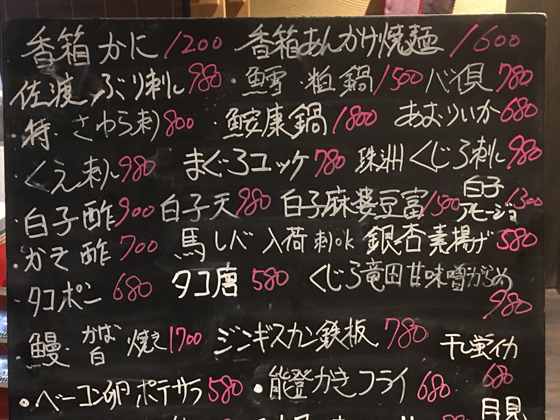 香箱かに 1200 香箱あんかけ焼麺 1600
佐渡ぶり刺し 980 ・鱈・粗鍋 1500 バイ貝 780
・特・さわら刺 800 ・鮟康鍋 1800 あおりいか 680
・くえ刺し 980 まぐろユッケ 780 珠洲くじろ刺し 980
・白子酢 900 白子天 980 白子麻婆豆富 1500 白子アヒージョ 1300
・かき酢 700 馬レバ入荷刺ok 銀杏素揚げ 580
・タコポン 680 タコ唐 580 くじろ竜田甘味噌がらめ 980
・鰻かな白焼き 1700 ジンギスカン鉄板 780 干し蛍イカ 680
・ベーコン卵ポテサラ 580 ・能登かきフライ 680 月見